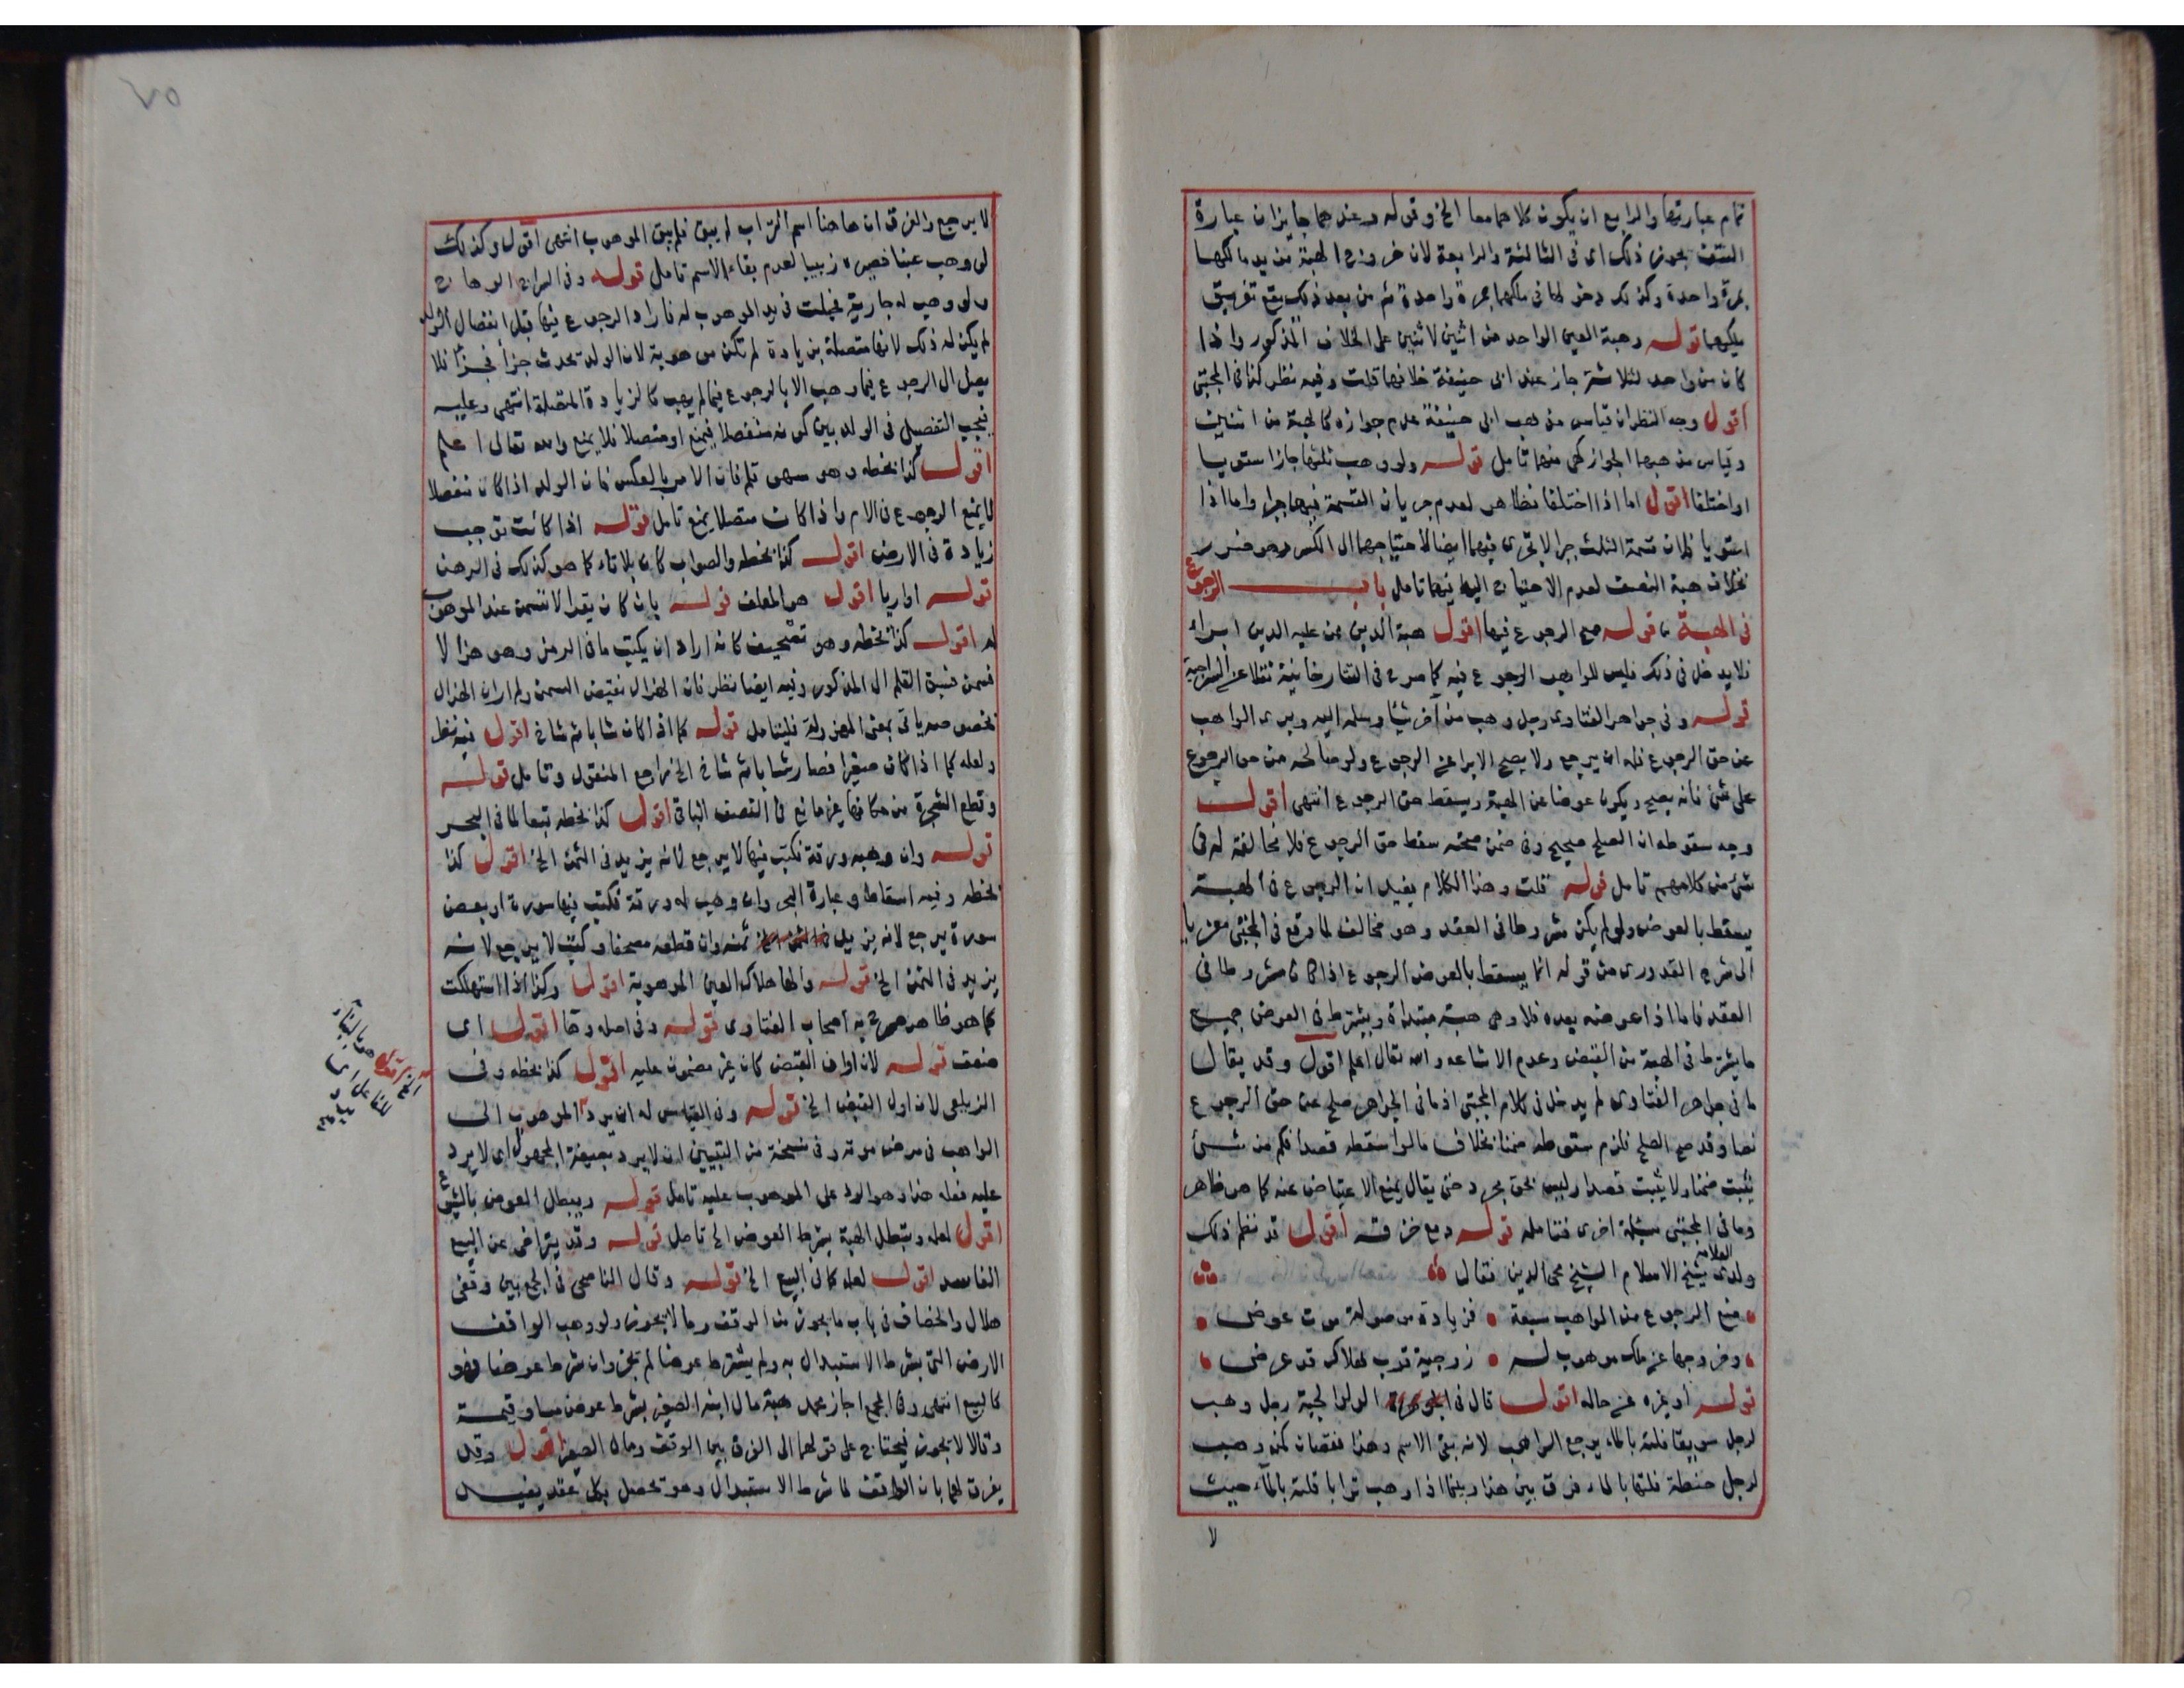 تمام عبارتها والرابع ان يكون كلاهما معا الخ وقوله وعندهما جايزان عبارة
النتف يجوز ذلك اى فى الثالثة والرابعة لان خروج الهبة من يد مالكها
بمرة واحدة وكذلك دخولها فى ملكهما بمرة واحدة ثم من بعد ذلك يقع تفريق
ملكهما قوله وهبة العين الواحد من اثنين لاثنين على الخلاف المذكور واذا
كان من واحد لثلاثة جاز عند ابى حنيفة خلافهما قلت وفيه نظر كذا فى المجتبى
اقول وجه النظر ان قياس مذهب ابى حنيفة عدم جوازه كالهبة من اثنين
وقياس مذهبهما الجواز كهى منهما تامل قوله ولو وهب ثلثها جاز استويا
او اختلفا اقول اما اذا اختلفا فظاهر لعدم جريان القسمة فيهما جبرا واما اذا
استويا فلان قسمة الثلث جبرا لا تجرى فيهما ايضا لاحتياجهما الى الكسر وهو ضرر
بخلاف هبة النصف لعدم الاحتياج اليه فيهما تامل باب الرجوع
فى الهبة قوله صح الرجوع فيها اقول هبة الدين ممن عليه الدين ابراء
فلا يدخل فى ذلك فليس للواهب الرجوع فيه كما صرح فى التتارخانية نقلا عن السراجية
قوله وفى جواهر الفتاوى رجل وهب من آخر شيئا وسلمه اليه وبرى الواهب
عن حق الرجوع فله ان يرجع ولا يصح الابرا عن الرجوع ولو صالحه من حق الرجوع
على شئ فانه يصح ويكون عوضا عن الهبة ويسقط حق الرجوع انتهى اقول
وجه سقوطه ان الصلح صحيح وفى ضمن صحته سقط حق الرجوع فلا مخالفة له فى
شئ من كلامهم تامل قوله قلت وهذا الكلام يفيد ان الرجوع فى الهبة
يسقط بالعوض ولو لم يكن مشروطا فى العقد وهو مخالف لما وقع فى المجتبى معزيا
الى شرح القدورى من قوله انما يسقط بالعوض الرجوع اذا كان مشروطا فى
العقد فاما اذا عوضه بعده فلا وهى هبة مبتداة ويشترط فى العوض جميع
ما يشترط فى الهبة من القبض وعدم الاشاعه والله تعالى اعلم اقول وقد يقال
ما فى جواهر الفتاوى لم يدخل فى كلام المجتبى اذ ما فى الجواهر صلح عن حق الرجوع
نصا وقد صح الصلح فلزم سقوطه ضمنا بخلاف ما لو اسقطه قصدا فكم من شئ
يثبت ضمنا ولا يثبت قصدا وليس بحق مجرد حتى يقال يمنع الاعتياض عنه كما هو ظاهر
وما فى المجتبى مسئلة اخرى فتامله قوله دمع خزقه اقول قد نظم ذلك
ولدى العلامة شيخ الاسلام الشيخ محى الدين فقال
منع الرجوع من المواهب سبعة فزيادة موصولة موت عوض
وخروجها عن ملك موهوب له زوجية قرب هلاك قد عرض
قوله او غيره عن حاله اقول قال فى الولوالجية رجل وهب
لرجل سويقا فلته بالماء يرجع الواهب لانه بقى الاسم وهذا نقصان كمن وهب
لرجل حنطة فلتها بالماء فرق بين هذا وبينما اذا وهب ترابا فلته بالماء حيث
لا
٧٥
لا يرجع والفرق ان هاهنا اسم التراب لم يبق فلم يبق الموهوب انتهى اقول وكذلك
لو وهب عنبا فصيره زبيبا لعدم بقاء الاسم تامل قوله وفى السراج الوهاج
ولو وهب له جارية فحبلت فى يد الموهوب له فاراد الرجوع فيها قبل انفصال الولد
لم يكن له ذلك لانها متصلة بزيادة لم تكن موهوبة لان الولد يحدث جزأ فجزأ فلا
يصل الى الرجوع فيما وهب الا بالرجوع فيما لم يهب كالزيادة المتصلة انتهى وعليه
فيجب التفصيل فى الولد بين كونه منفصلا فيمنع او متصلا فلا يمنع والله تعالى اعلم
اقول كذا بخطه وهو سهو قلم فان الامر بالعكس فان الولد اذا كان منفصلا
لا يمنع الرجوع فى الام واذا كان متصلا يمنع تامل قوله اذا كانت توجب
زيادة فى الارض اقول كذا بخطه والصواب كان بلا تاء كما هو كذلك فى الرمز
قوله اواريا اقول هو المعلف قوله بان كان يقدا لا نسمن عند الموهوب
له اقول كذا بخطه وهو تصحيف كانه اراد ان يكتب ما فى الرمز وهو هزالا
فسمن فسبق القلم الى المذكور وفيه ايضا نظر فان الهزال نقيض السمن ولم ار ان الهزال
بخصوصه ياتى بمعنى المهزولة فليتامل قوله كما اذا كان شابا ثم شاخ اقول فيه نظر
ولعله كما اذا كان صغيرا فصار شابا ثم شاخ الخ فراجع المنقول وتامل قوله
وقطع الشجرة من مكانها غير مانع فى النصف الباقى اقول كذا بخطه تبعا لما فى البحر
قوله وان وهبه ورقة فكتب فيها لا يرجع لانه يزيد فى الثمن الخ اقول كذا
بخطه وفيه اسقاط وعبارة البحر وان وهب له ورقة فكتب فيها سورة او بعض
سورة يرجع لانه يزيد ثمنه وان قطعه مصحفا وكتب لا يرجع لانه
يزيد فى الثمن الخ قوله والها هلاك العين الموهوبة اقول وكذا اذا استهلكت
كما هو ظاهر صرح به اصحاب الفتاوى قوله وفى اصله وها اقول اى
ضعف قوله لان اوان القبض كان غير مضمون عليه اقول كذا بخطه وفى
الزيلعى لان اول القبض الخ قوله وفى القياس له ان يرد الموهوب الى
الواهب فى مرض موته وفى نسخة من التبيين ان لا يرد بصيغة المجهول اى لا يرد
عليه فعله هذا وهو الرد على الموهوب عليه تامل قوله ويبطل العوض بالشيوع
اقول لعله وتبطل الهبة بشرط العوض الخ تامل قوله وقد يتراخى عن البيع
الفاسد اقول لعله كما فى البيع الخ قوله وقال الناصحى فى الجمع بين وقفى
هلال والخصاف فى باب ما يجوز من الوقف وما لا يجوز ولو وهب الواقف
الارض التى شرط الاستبدال به ولم يشترط عوضا لم يجز وان شرط عوضا فهو
كالبيع انتهى وفى المجمع اجاز محمد هبة مال ابنه الصغير بشرط عوض مساو قيمة
وقالا لا يجوز فيحتاج على قولهما الى الفرق بين الوقف ومال الصغير اقول وقد
يفرق لهما بان الواقف لما شرط الاستبدال وهو يحصل بكل عقد يفيد